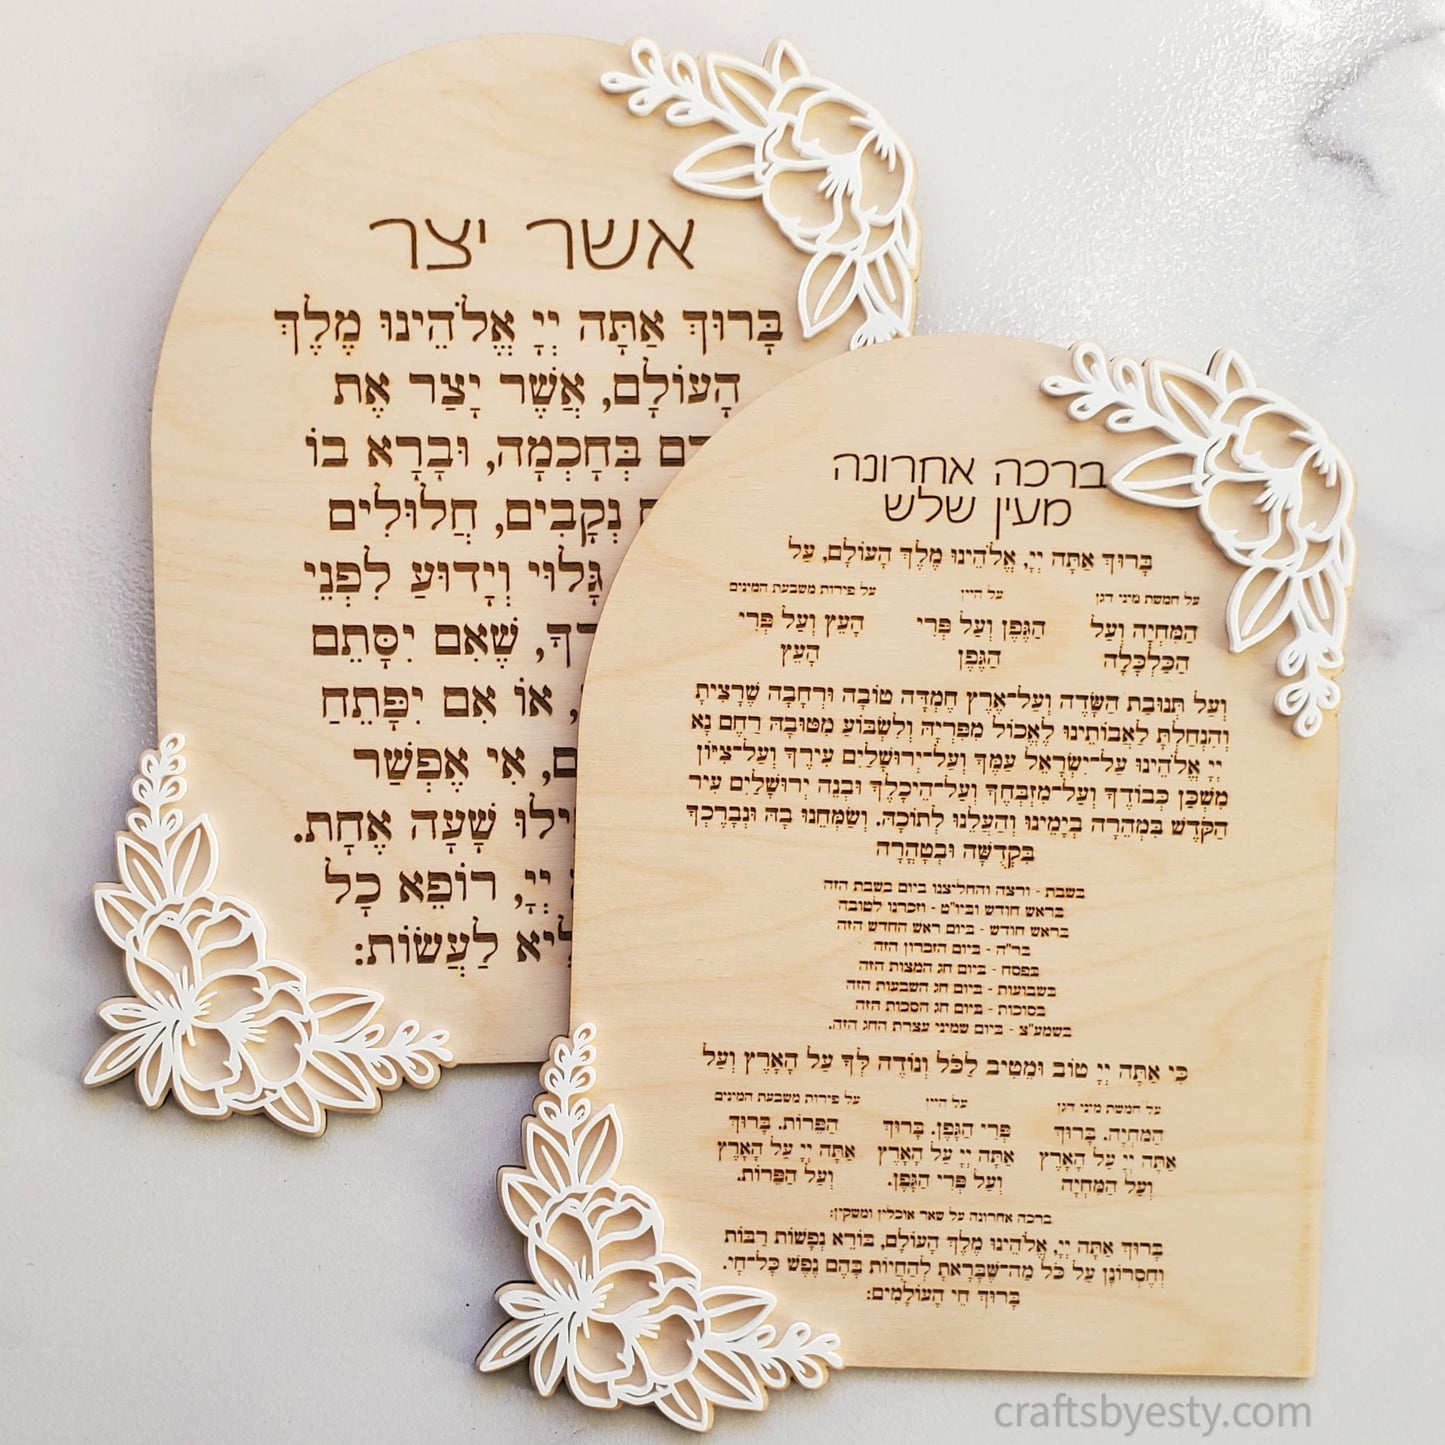 אשר יצר
בָּרוּךְ אַתָּה יְיָ אֱלֹהֵינוּ מֶלֶךְ
הָעוֹלָם, אֲשֶׁר יָצַר אֶת
בְּחָכְמָה, וּבָרָא בוֹ
נְקָבִים, חֲלוּלִים
גָּלוּי וְיָדוּעַ לִפְנֵי
שֶׁאִם יִסָּתֵם
אוֹ אִם יִפָּתֵחַ
אִי אֶפְשַׁר
שָׁעָה אֶחָת.
יְיָ, רוֹפֵא כָל
לַעֲשׂוֹת:
ברכה אחרונה
מעין שלש
בָּרוּךְ אַתָּה יְיָ, אֱלֹהֵינוּ מֶלֶךְ הָעוֹלָם, עַל
על חמשת מיני דגן על היין על פירות משבעת המינים
הַמִּחְיָה וְעַל הַגֶּפֶן וְעַל פְּרִי הָעֵץ וְעַל פְּרִי
הַכַּלְכָּלָה הַגֶּפֶן הָעֵץ
וְעַל תְּנוּבַת הַשָּׂדֶה וְעַל־אֶרֶץ חֶמְדָּה טוֹבָה וּרְחָבָה שֶׁרָצִיתָ
וְהִנְחַלְתָּ לַאֲבוֹתֵינוּ לֶאֱכוֹל מִפִּרְיָהּ וְלִשְׂבּוֹעַ מִטּוּבָהּ רַחֵם נָא
יְיָ אֱלֹהֵינוּ עַל־יִשְׂרָאֵל עַמֶּךָ וְעַל־יְרוּשָׁלַיִם עִירֶךָ וְעַל־צִיּוֹן
מִשְׁכַּן כְּבוֹדֶךָ וְעַל־מִזְבְּחֶךָ וְעַל־הֵיכָלֶךָ וּבְנֵה יְרוּשָׁלַיִם עִיר
הַקֹּדֶשׁ בִּמְהֵרָה בְיָמֵינוּ וְהַעֲלֵנוּ לְתוֹכָהּ. וְשַׂמְּחֵנוּ בָהּ וּנְבָרֶכְךָ
בִּקְדֻשָּׁה וּבְטָהֳרָה
בשבת - ורצה והחליצנו ביום בשבת הזה
בראש חודש וביו"ט - וזכרנו לטובה
בראש חודש - ביום ראש החדש הזה
בר"ה - ביום הזכרון הזה
בפסח - ביום חג המצות הזה
בשבועות - ביום חג השבעות הזה
בסוכות - ביום חג הסכות הזה
בשמע"צ - ביום שמיני עצרת החג הזה.
כִּי אַתָּה יְיָ טוֹב וּמֵטִיב לַכֹּל וְנוֹדֶה לְּךָ עַל הָאָרֶץ וְעַל
על חמשת מיני דגן על היין על פירות משבעת המינים
הַמִּחְיָה. בָּרוּךְ פְּרִי הַגָּפֶן. בָּרוּךְ הַפֵּרוֹת. בָּרוּךְ
אַתָּה יְיָ עַל הָאָרֶץ אַתָּה יְיָ עַל הָאָרֶץ אַתָּה יְיָ עַל הָאָרֶץ
וְעַל הַמִּחְיָה וְעַל פְּרִי הַגָּפֶן. וְעַל הַפֵּרוֹת.
ברכה אחרונה על שאר אוכלין ומשקין:
בָּרוּךְ אַתָּה יְיָ, אֱלֹהֵינוּ מֶלֶךְ הָעוֹלָם, בּוֹרֵא נְפָשׁוֹת רַבּוֹת
וְחֶסְרוֹנָן עַל כֹּל מַה־שֶּׁבָּרָאתָ לְהַחֲיוֹת בָּהֶם נֶפֶשׁ כָּל־חָי.
בָּרוּךְ חֵי הָעוֹלָמִים:
craftsbyesty.com